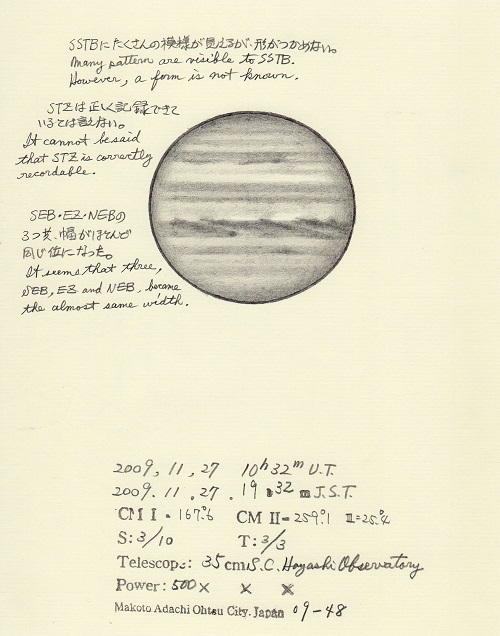 SSTBにたくさんの模様が見えるが、形がつかめない。
Many pattern are visible to SSTB.
However, a form is not known.
STZは正しく記録できて
いるとは言えない。
It cannot be said
that STZ is correctly
recordable.
SEB・EZ・NEBの
3つ共、幅がほとんど
同じ位になった。
It seems that three,
SEB, EZ and NEB, become
the almost same width.
2009, 11, 27 10h 32m U.T.
2009. 11. 27. 19h 32m J.S.T.
CM I = 167°.6 CM II = 259°.1 III=25°.4
S: 3/10 T: 3/3
Telescope: 35cm S.C. Hayashi Observatory
Power: 500× × ×
Makoto Adachi Ohtsu City. Japan 09-48